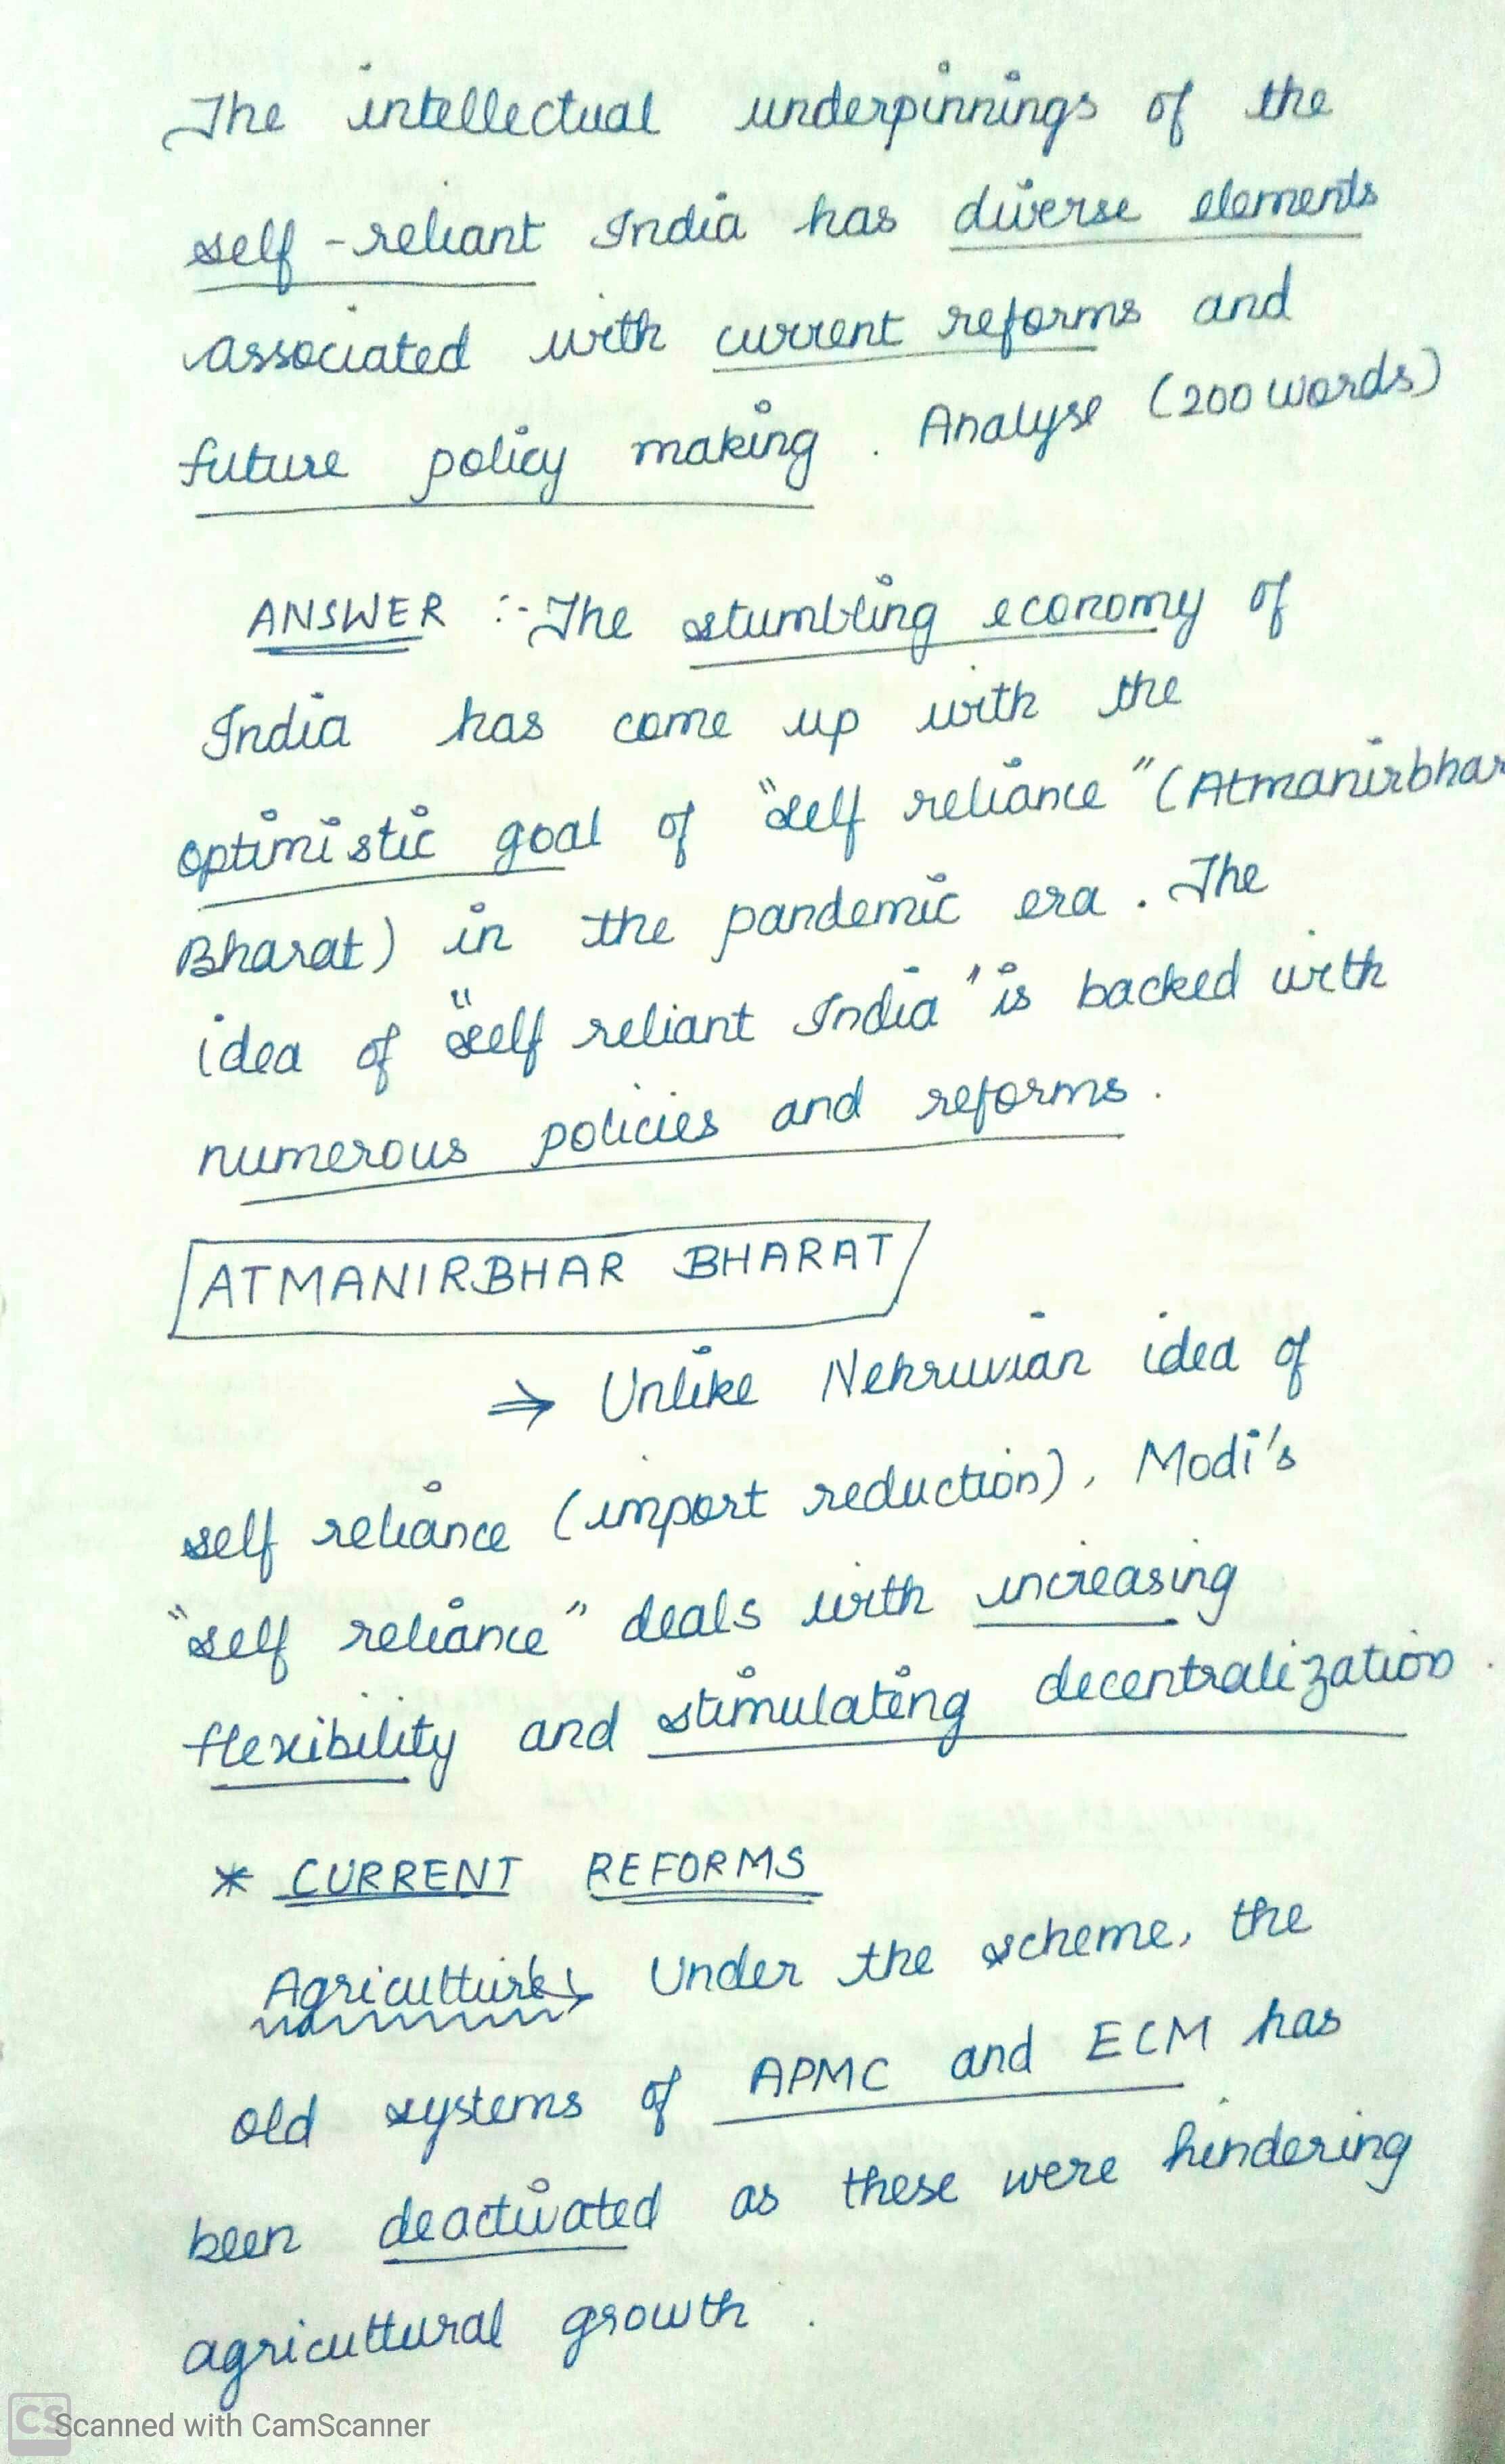 The intellectual underpinnings of the
self-reliant India has diverse elements
associated with current reforms and
future policy making. Analyse (200 words)
ANSWER :- The stumbling economy of
India has come up with the
optimistic goal of "self reliance" (Atmanirbhar
Bharat) in the pandemic era. The
idea of "self reliant India" is backed with
numerous policies and reforms.
ATMANIRBHAR BHARAT
⇒ Unlike Nehruvian idea of
self reliance (import reduction), Modi's
"self reliance" deals with increasing
flexibility and stimulating decentralization.
* CURRENT REFORMS
Agriculture → Under the scheme, the
old systems of APMC and ECM has
been deactivated as these were hindering
agricultural growth.
CS Scanned with CamScanner